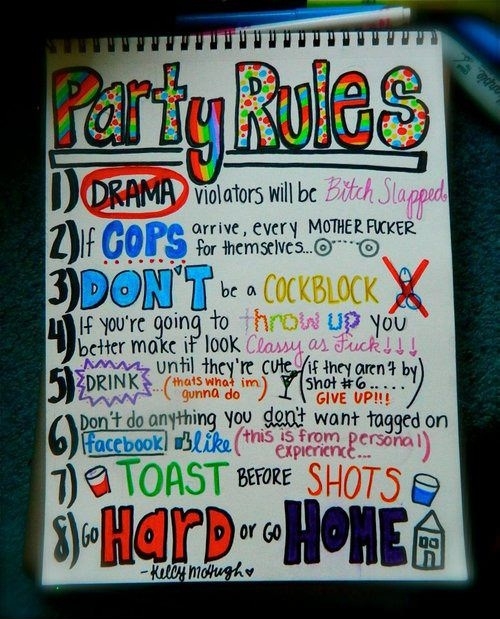 Party Rules
1) DRAMA violators will be Bitch Slapped
2) If COPS arrive, every MOTHER FUCKER
for themselves...
3) DON'T be a COCKBLOCK
4) If you're going to throw up you
better make it look Classy as Fuck↓↓↓
5) DRINK until they're cute (if they aren't by
...(thats what im gunna do) shot #6..... GIVE UP!!!)
6) Don't do anything you don't want tagged on
facebook like (this is from personal
experience...)
7) TOAST BEFORE SHOTS
8) GO HARD or GO HOME
- Kelly McHugh ♥